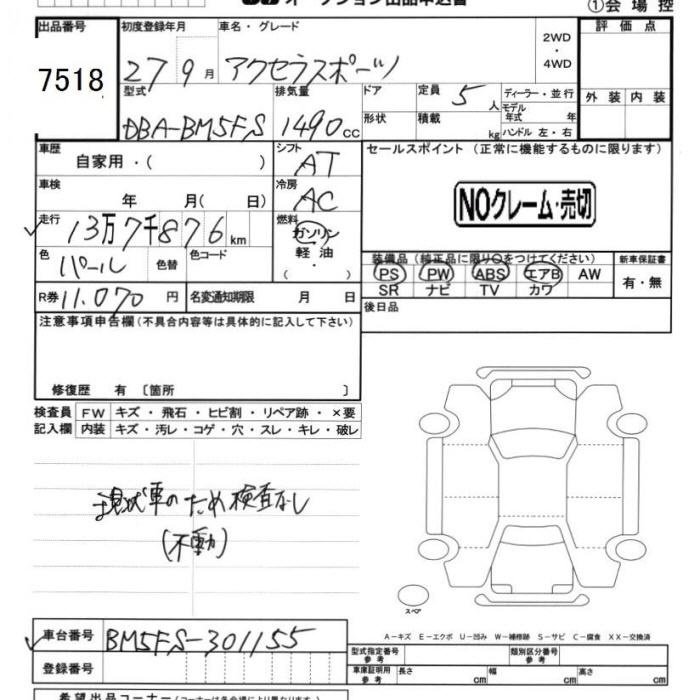 オークション出品申込書
①会場控
出品番号 初度登録年月 車名・グレード 2WD・4WD 評価点
7518 27 9月 アクセラスポーツ
型式 排気量 ドア 定員 5人 ディーラー・並行 外装 内装
DBA-BM5FS 1490cc 形状 積載 kg モデル年式 年 ハンドル 左・右
車歴 自家用・( ) シフト AT セールスポイント (正常に機能するものに限ります)
車検 年 月( 日) 冷房 AC
NOクレーム・売切
走行 13万7千876km 燃料 ガソリン 軽油 ( ・ )
色 パール 色替 色コード
装備品 (純正品に限り○をつけてください) 新車保証書
PS PW ABS エアB AW 有・無
SR ナビ TV カワ
R券 11,070円 名変通知期限 月 日
後日品
注意事項申告欄 (不具合内容等は具体的に記入して下さい)
修復歴 有 〔箇所 〕
検査員 FW キズ・飛石・ヒビ割・リペア跡・×要
記入欄 内装 キズ・汚レ・コゲ・穴・スレ・キレ・破レ
現状車のため検査なし
(不動)
スペア
車台番号 BM5FS-301155
A−キズ E−エクボ U−凹み W−補修跡 S−サビ C−腐食 XX−交換済
登録番号
型式指定番号 参考 類別区分番号 参考
車庫証明用 参考 長さ cm 幅 cm 高さ cm
希望出品コーナー (コーナーは各会場により異なります)